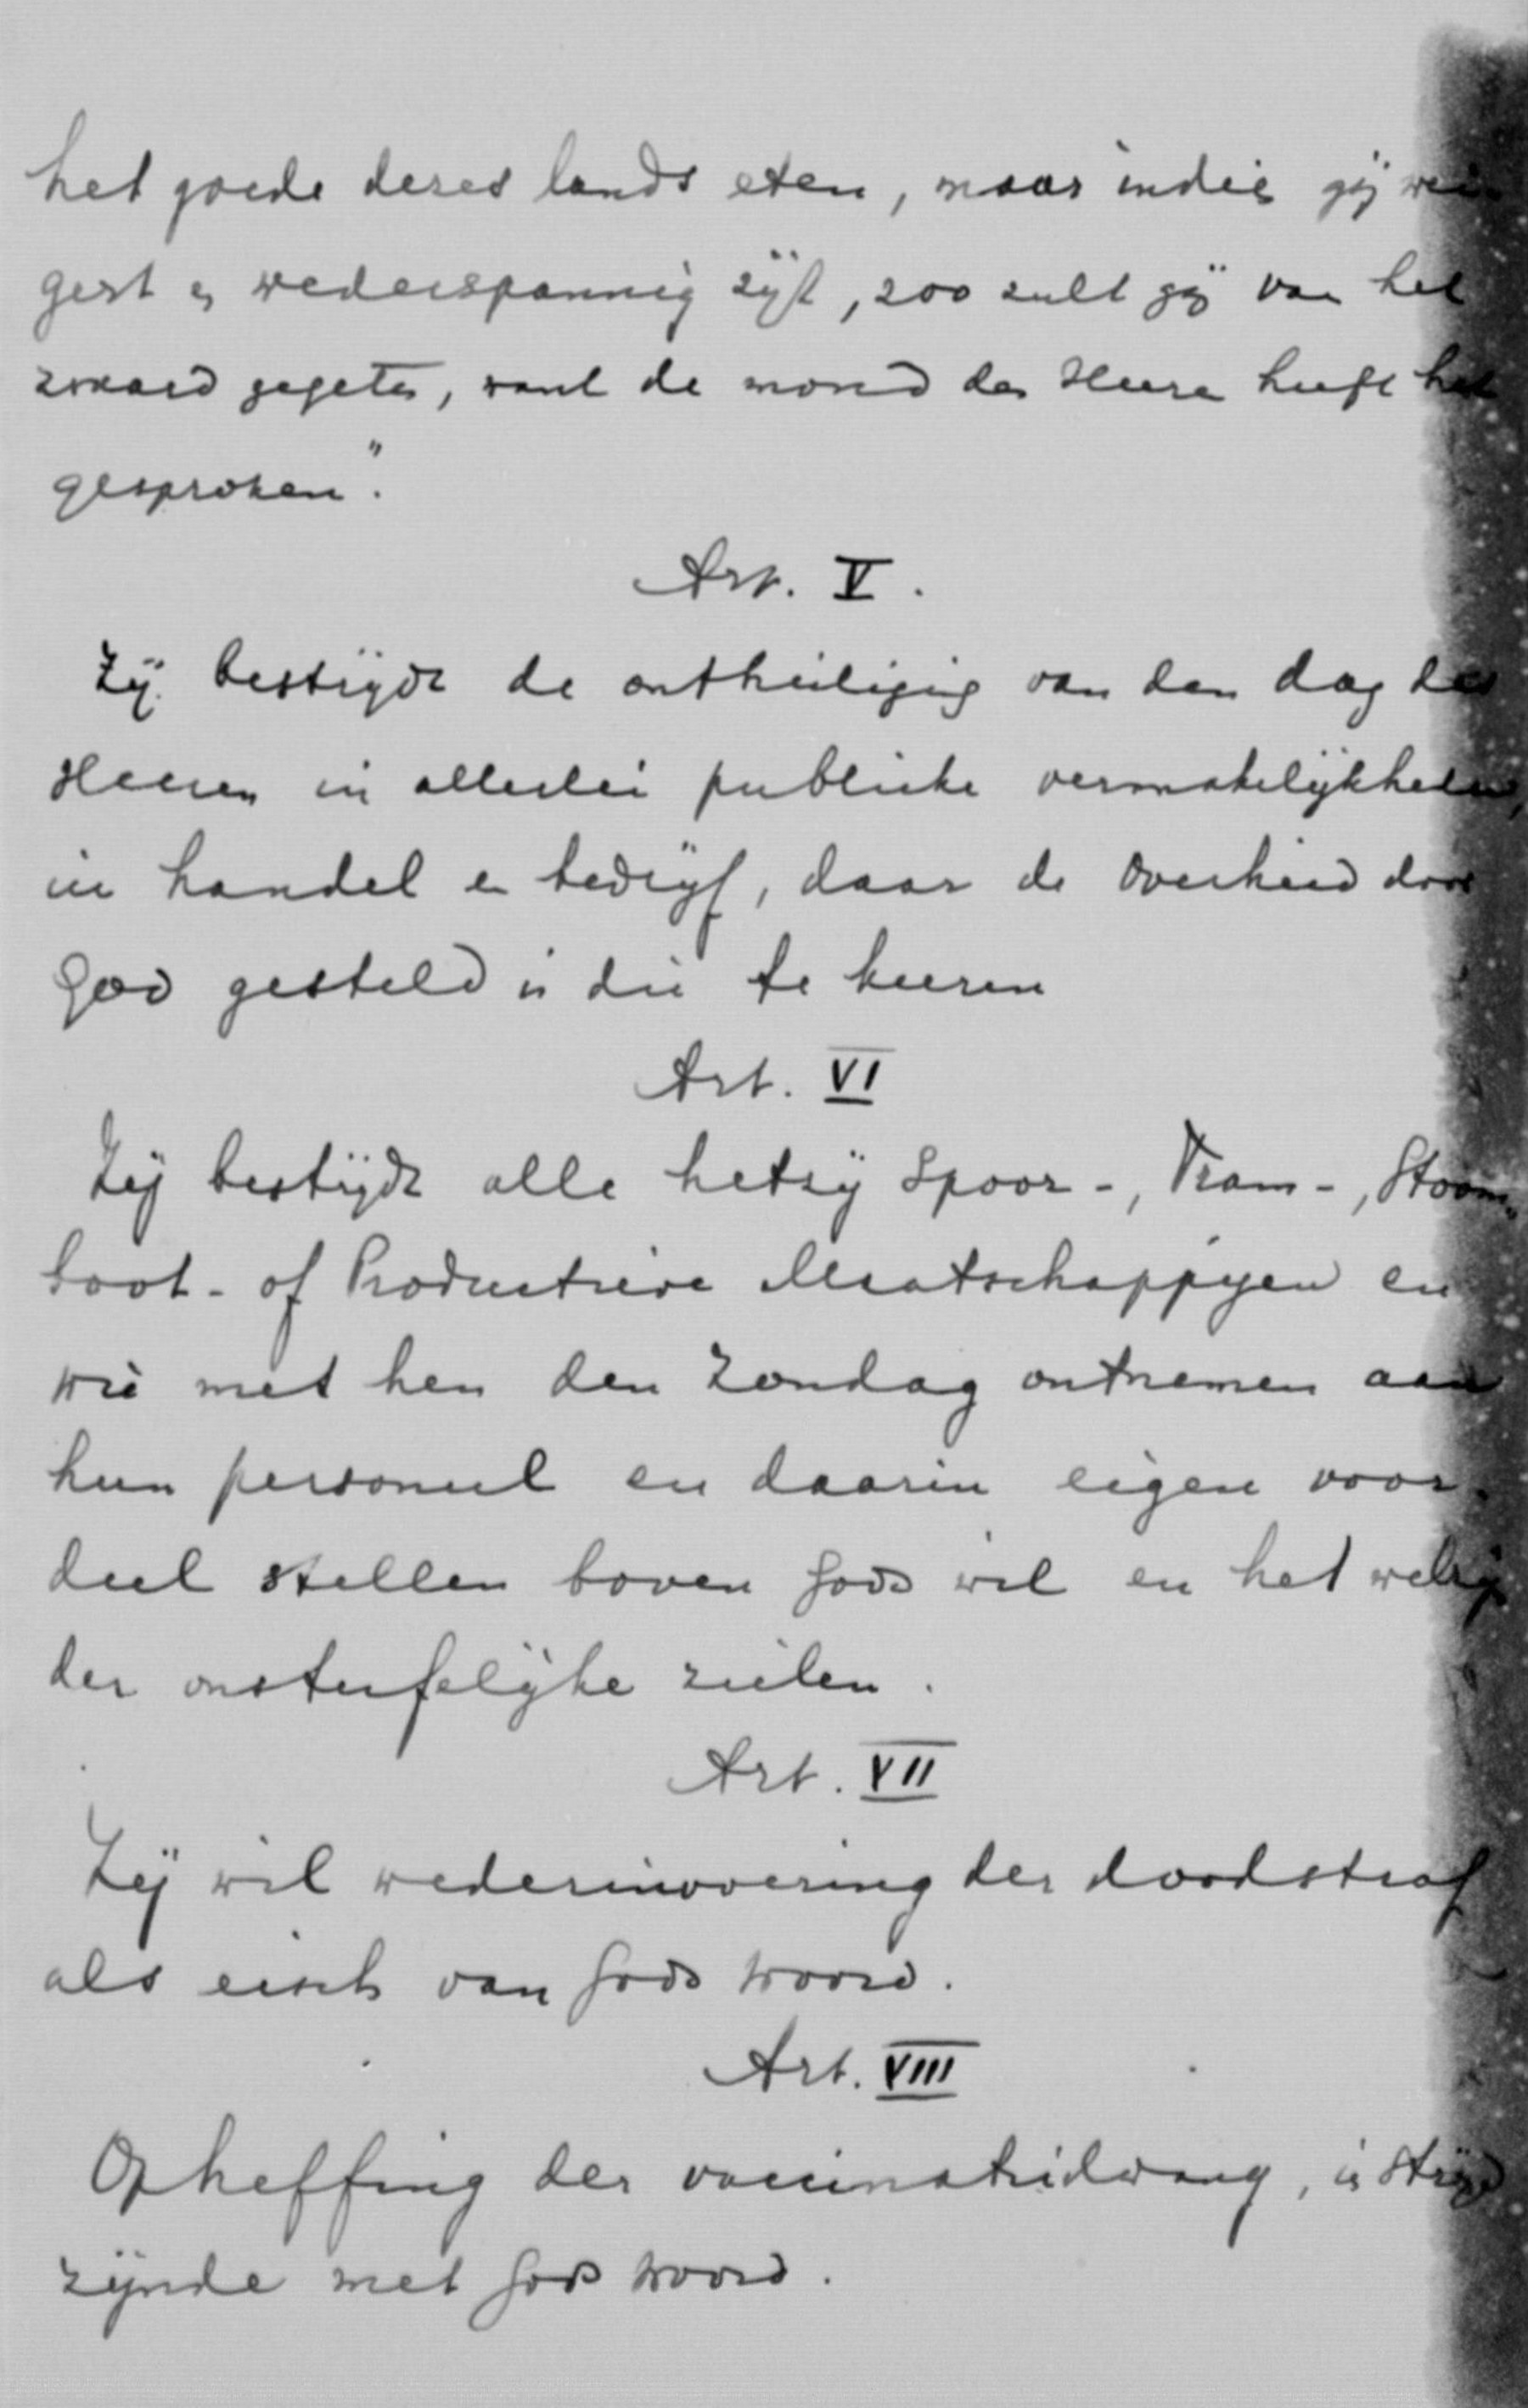 het goede deres lands eten, maar indien gij wei-
gert en wederspannig zijt, zoo zult gij van het
zwaard gegeten, want de mond des Heeren heeft het
gesproken."
Art. V.
Zij bestrijdt de ontheiliging van den dag des
Heeren in allerlei publieke vermakelijkheden,
in handel en bedrijf, daar de Overheid door
God gesteld is die te keeren
Art. VI
Zij bestrijdt alle hetzij Spoor-, Tram-, Stoom-
boot- of Productieve Maatschappijen en
wie met hen den Zondag ontnemen aan
hun personeel en daarin eigen voor-
deel stellen boven Gods wil en het welzijn
der onsterfelijke zielen.
Art. VII
Zij wil wederinvoering der doodstraf
als eisch van Gods woord.
Art. VIII
Opheffing der vaccinatiedwang, in strijd
zijnde met Gods woord.